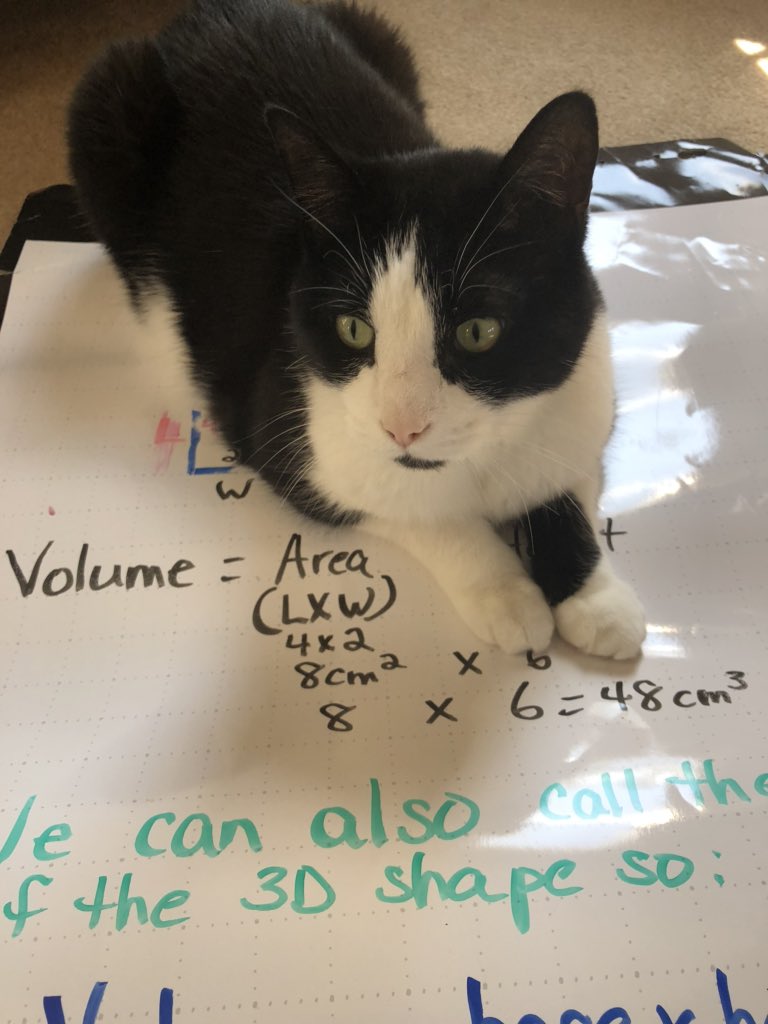 2
W
Volume = Area
(LXW)
4x2
8cm² x 6
8 x 6 = 48cm³
We can also call the
of the 3D shape so:
base x